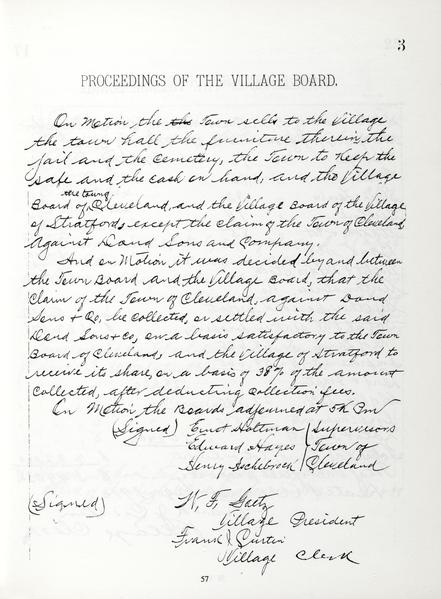 3
PROCEEDINGS OF THE VILLAGE BOARD.
On Motion the the Town sells to the Village
the town hall the furniture therein, the
jail and the Cemetery, the Town to keep the
safe and the cash on hand, and the Village
the town
Board of Cleveland, and the Village Board of the Village
of Stratford, except the claim of the Town of Cleveland
Against Dand Sons and Company.
And on Motion it was decided by and between
the Town Board and the Village Board, that the
Claim of the Town of Cleveland, against Dand
Sons & Co, be collected, or settled with the said
Dand Sons & Co, on a basis satisfactory to the Town
Board of Cleveland, and the Village of Stratford to
receive its share, on a basis of 38% of the amount
Collected, after deducting collection fees.
On Motion the Boards adjourned at 5h Pm
(Signed) Ernst Holtman Supervisors
Edward Hayes Town of
Henry Cleveland
(Signed) N. F. Goetz
Village President
Frank J. Curtin
Village Clerk
57